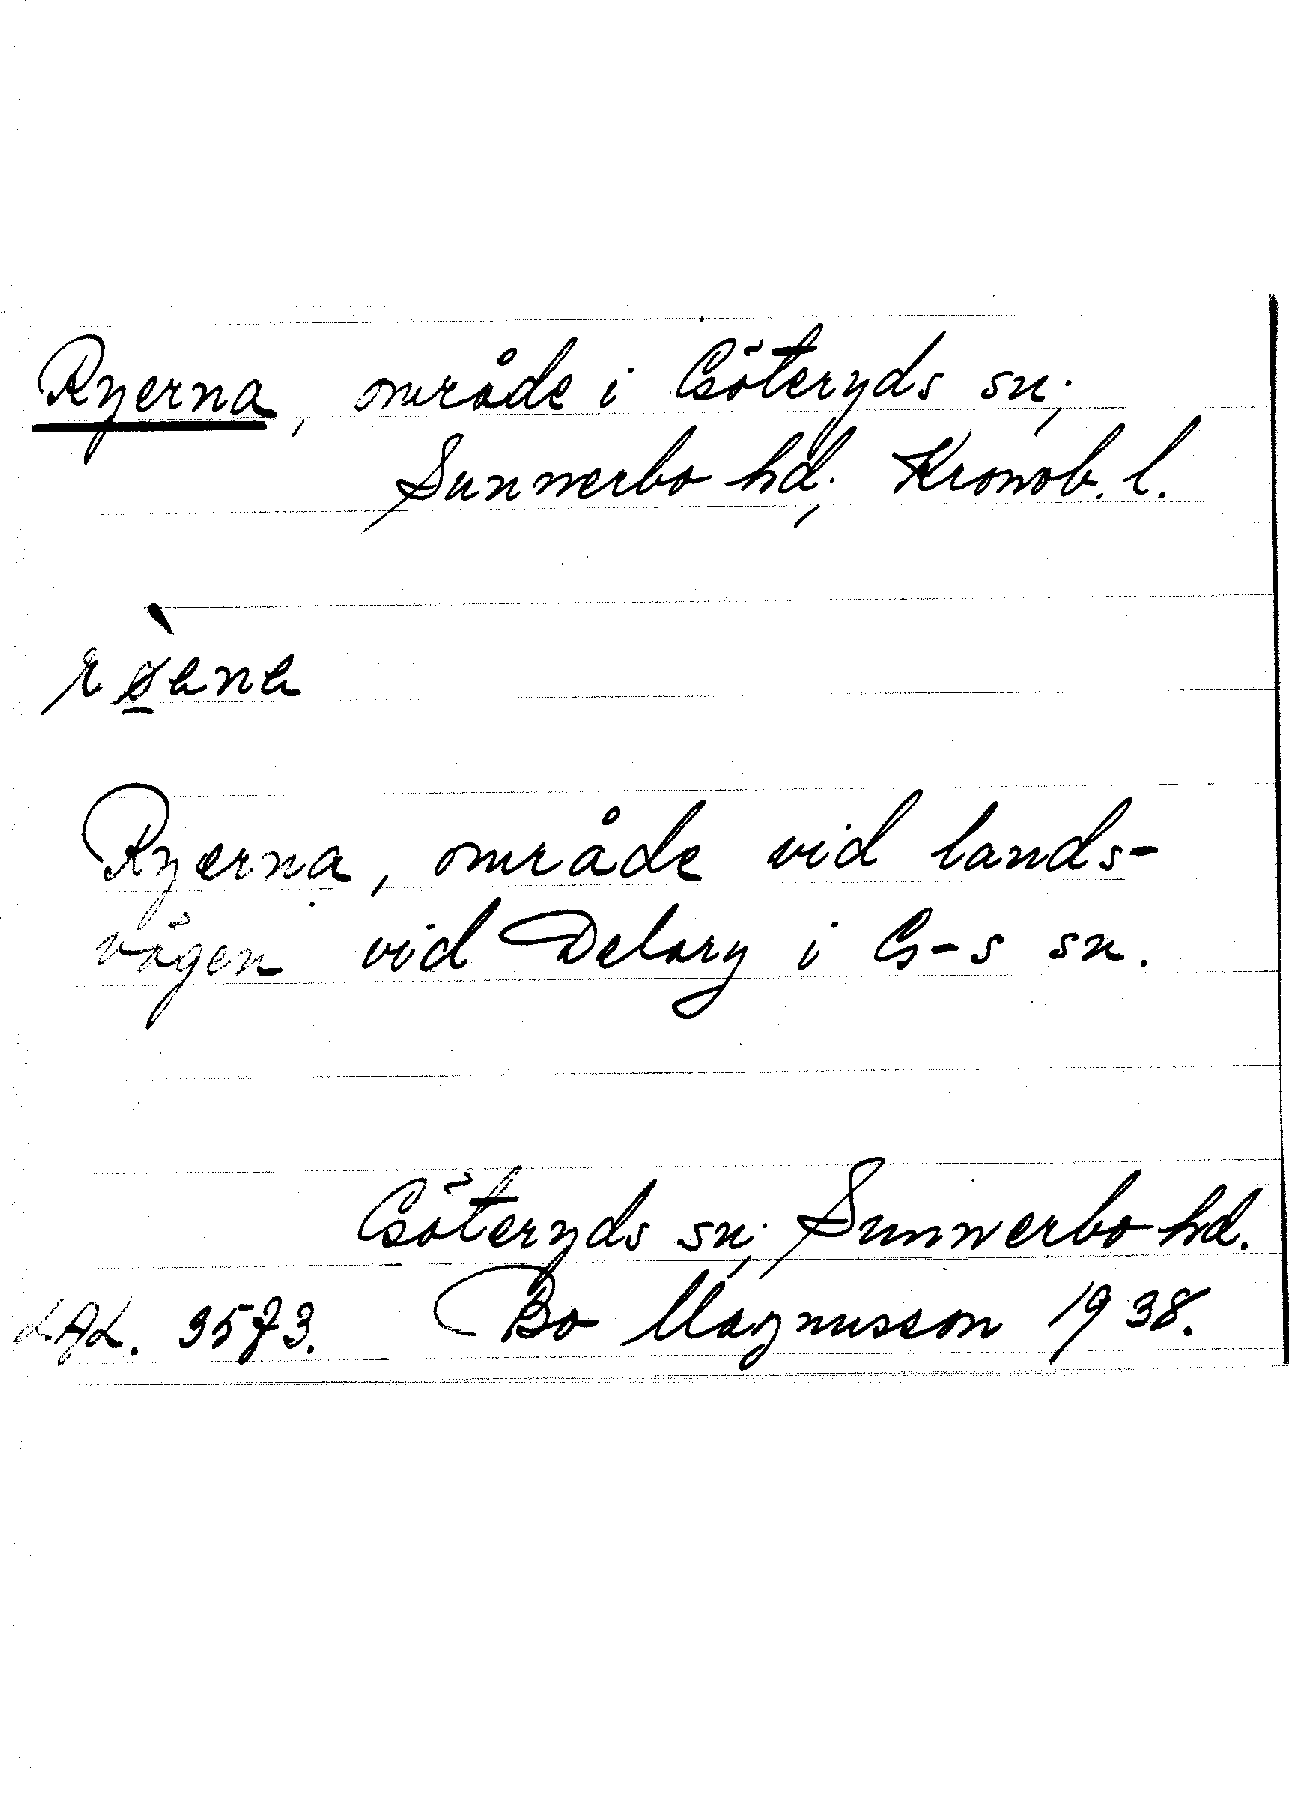 Ryerna, område i Göteryds sn;
Sunnerbo hd; Kronob. l.
Ryerna, område vid lands-
vägen vid Delary i G-s sn.
Göteryds sn; Sunnerbo hd.
LAL. 3573. Bo Magnusson 1938.